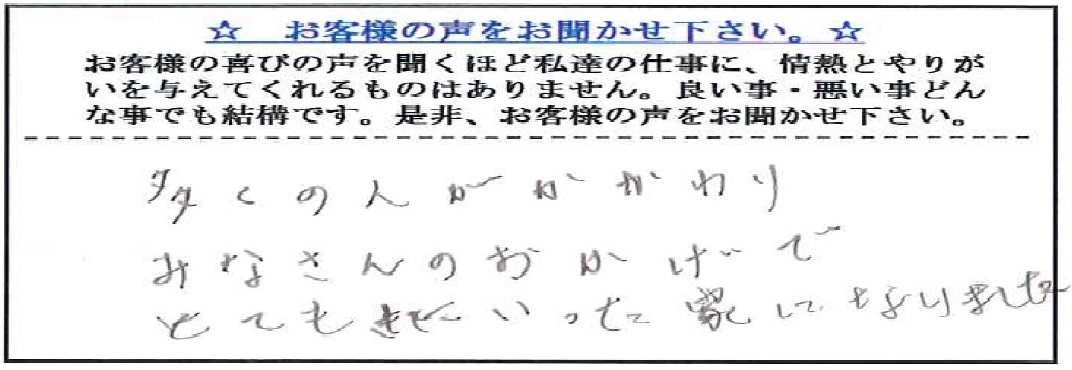 ☆ お客様の声をお聞かせ下さい。☆
お客様の喜びの声を聞くほど私達の仕事に、情熱とやりが
いを与えてくれるものはありません。良い事・悪い事どん
な事でも結構です。是非、お客様の声をお聞かせ下さい。
多くの人がかかわり
みなさんのおかげで
とても きにいった家になりました